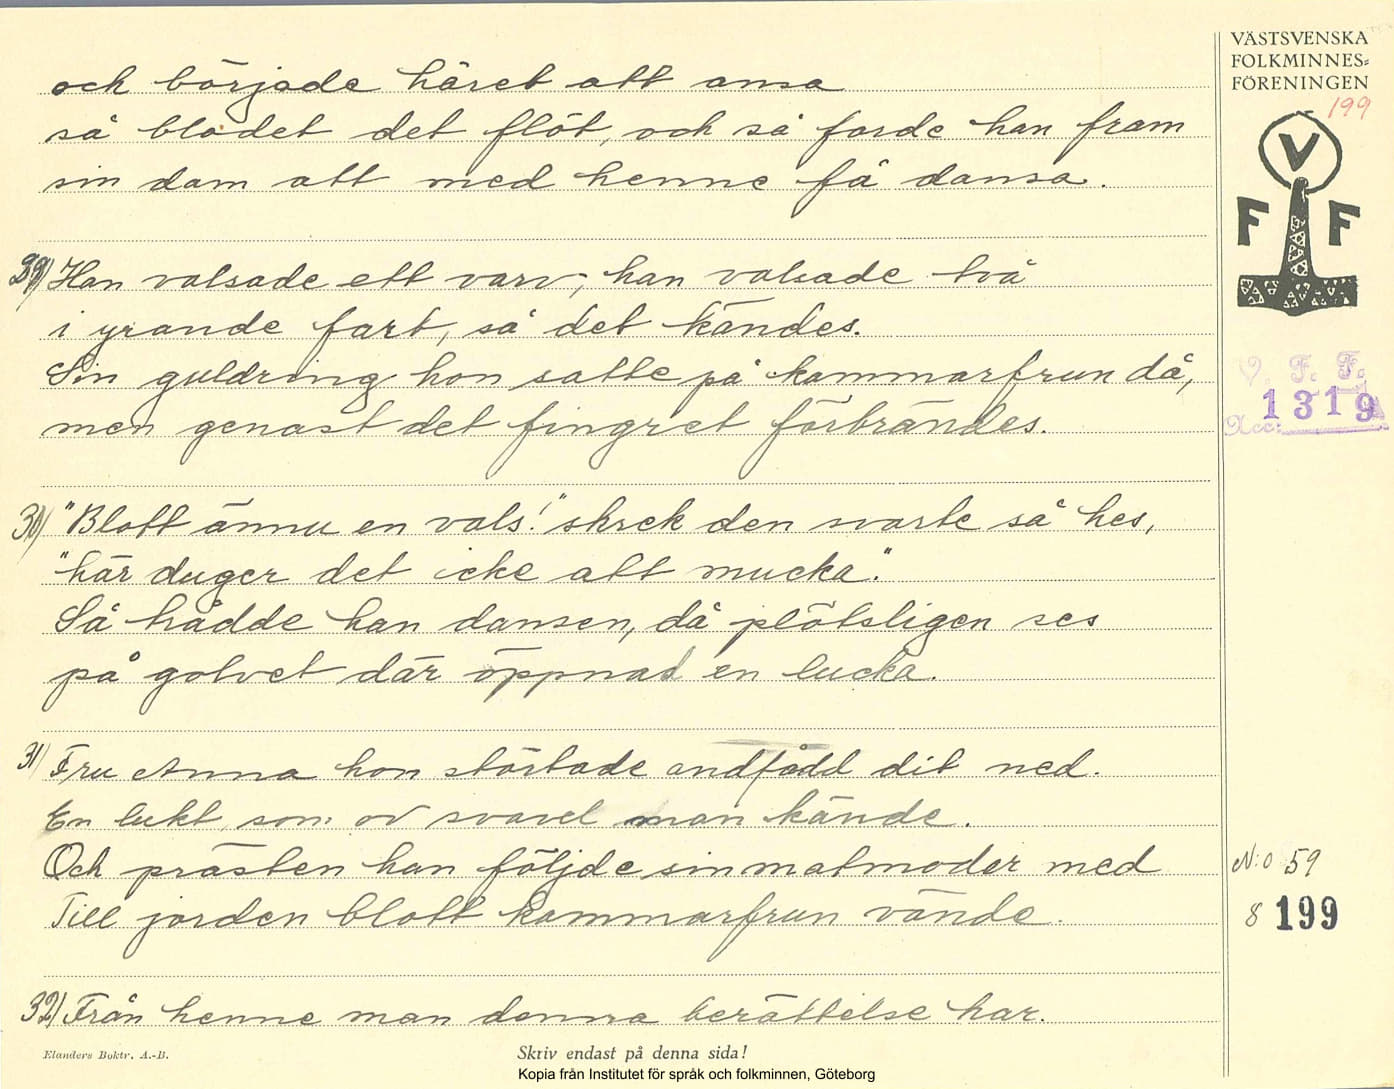 och började håret att ansa
så blodet det flöt, och så förde han fram
sin dam att med henne få dansa.
29) Han valsade ett varv, han valsade två
i yrande fart, så det kändes.
Sin guldring hon satte på kammarfrun då,
men genast det fingret förbrändes.
30) "Blott ännu en vals!" skrek den svarte så hes,
"här duger det icke att mucka."
Så trådde han dansen, då plötsligen ses
på golvet där öppnad en lucka.
31) Fru Anna hon störtade andfådd dit ned.
En lukt, som av svavel man kände.
Och prästen han följde sin matmoder med
Till jorden blott kammarfrun vände.
32) Från henne man denna berättelse har.
Elanders Boktr. A.-B.
Skriv endast på denna sida!
Kopia från Institutet för språk och folkminnen, Göteborg
VÄSTSVENSKA
FOLKMINNES=
FÖRENINGEN
199
V
F F
V. F. F.
1319
Acc:
N:o 59
8 199